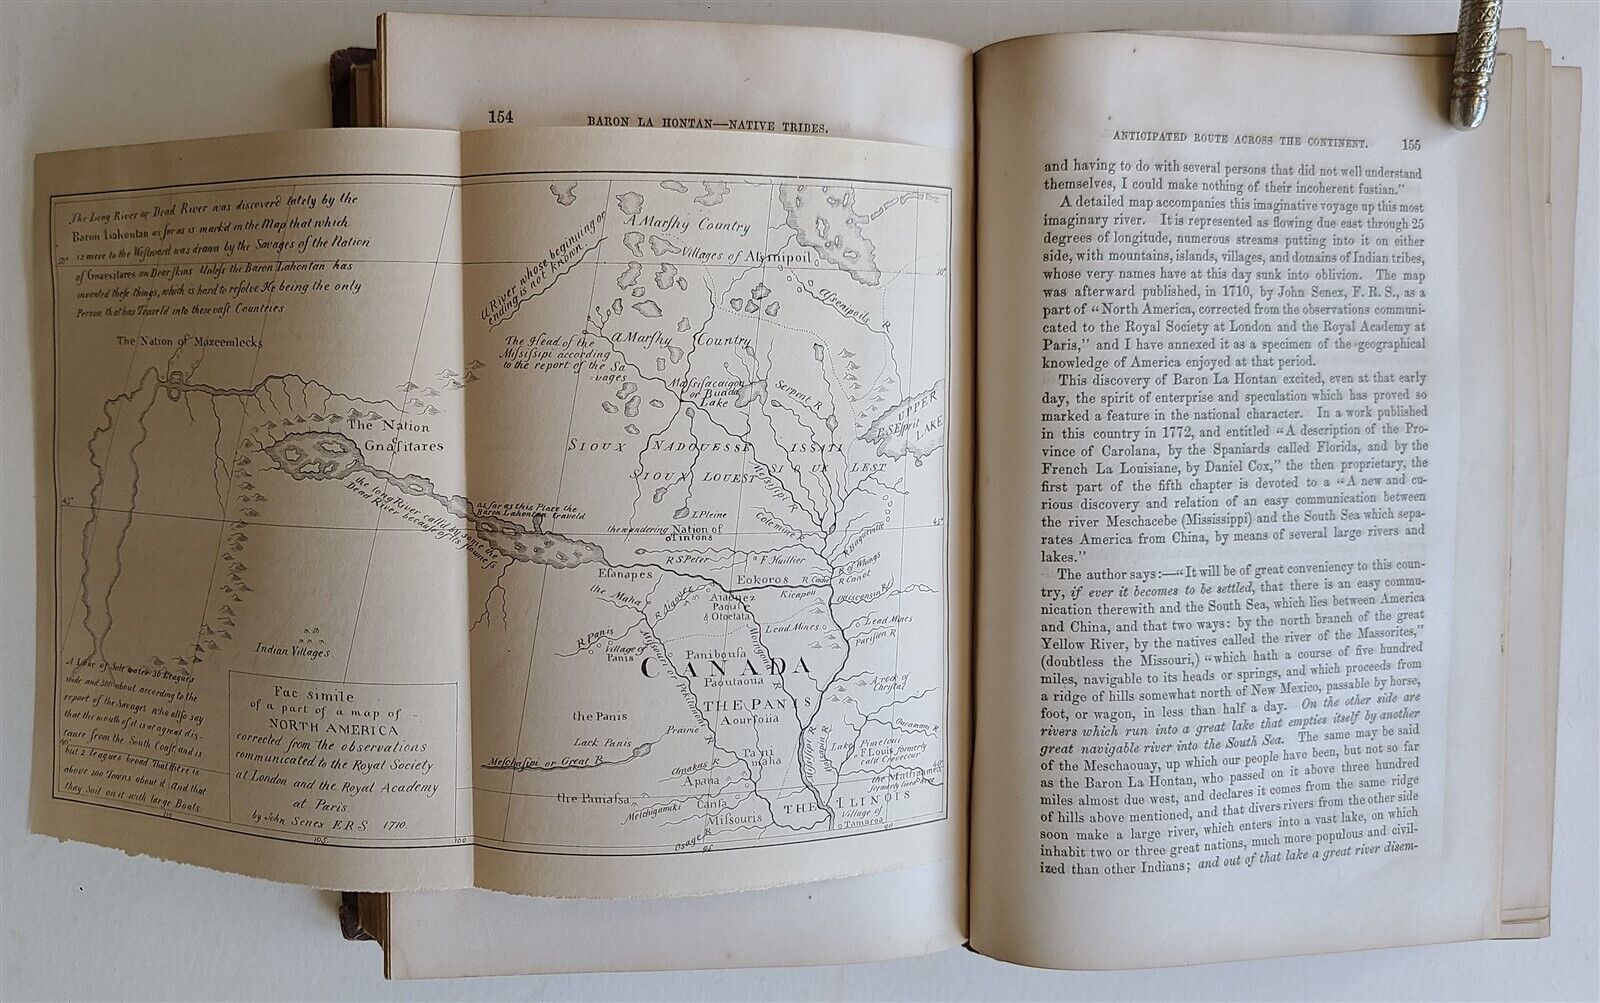 154
BARON LA HONTAN—NATIVE TRIBES.
The Long River or Dead River was discover'd lately by the
Baron Lahontan as far as is mark'd in the Map that which
is more to the Westward was drawn by the Savages of the Nation
of Gnacsitares on Dear skins Unless the Baron Lahontan has
invented these things, which is hard to resolve He being the only
Person that has Traveld into these vast Countries
The Nation of Mozeemlecks
The Nation
Gnasitares
the Long River calld by some the
Dead River because of its slowness
as far as this Place the
Baron Lahontan traveld
Indian Villages
A Lake of Salt water 30 Leagues
wide and 300 about according to the
report of the Savages who allso say
that the mouth of it is at a great dis-
tance from the South Coast and is
but 2 leagues broad That there is
above 100 Towns about it And that
they Sail on it with large Boats.
Fac simile
of a part of a map of
NORTH AMERICA
corrected from the observations
communicated to the Royal Society
at London and the Royal Academy
at Paris.
by John Senex F.R.S 1710.
50°
45°
40°
110
105.
100
95
90
45°
40°
A River whose beginning or
ending is not known.
A Marshy Country
Villages of Assinipoil
Assenipoils R
The Head of the
Missisipi according
to the report of the Sa
-vages
A Marshy Country
Massisacaigon
or Buade
Lake
Serpent R
UPPER
LAKE
SIOUX NADOUESSE ISSATI
SIOUX LOUEST
SIOUX LEST
Missisipi R
L Pleine
the wandering Nation of
Tintons
R S Peter
F Huillier
Esanapes
Eokoros
R Cache
R Canot
Kicapou
Ouisconsin R
the Maha
Aiaouez
Paoute
& Otoctata
Lead Mines
Lead Mines
Parisien R
R Panis
Village of
Panis
Panibousa
CANADA
Paoutaoua
THE PANIS
Aourfoiia
Moingona R
A rock of
Chrystal
the Panis
Prearie R
Lack Panis
Meschasipi or Great R
Pa ni
maha
Lake Pimeteui
F Louis formerly
calld Crevecœur
Amakas R
Apana
the Paniassa
Cansa
Missouris
Osage R
THE ILINOIS
Village of
Tamaroa
ANTICIPATED ROUTE ACROSS THE CONTINENT.
155
and having to do with several persons that did not well understand
themselves, I could make nothing of their incoherent fustian."
A detailed map accompanies this imaginative voyage up this most
imaginary river. It is represented as flowing due east through 25
degrees of longitude, numerous streams putting into it on either
side, with mountains, islands, villages, and domains of Indian tribes,
whose very names have at this day sunk into oblivion. The map
was afterward published, in 1710, by John Senex, F. R. S., as a
part of "North America, corrected from the observations communi-
cated to the Royal Society at London and the Royal Academy at
Paris," and I have annexed it as a specimen of the geographical
knowledge of America enjoyed at that period.
This discovery of Baron La Hontan excited, even at that early
day, the spirit of enterprise and speculation which has proved so
marked a feature in the national character. In a work published
in this country in 1772, and entitled "A description of the Pro-
vince of Carolana, by the Spaniards called Florida, and by the
French La Louisiane, by Daniel Cox," the then proprietary, the
first part of the fifth chapter is devoted to a "A new and cu-
rious discovery and relation of an easy communication between
the river Meschacebe (Mississippi) and the South Sea which sepa-
rates America from China, by means of several large rivers and
lakes."
The author says:—"It will be of great conveniency to this coun-
try, if ever it becomes to be settled, that there is an easy commu-
nication therewith and the South Sea, which lies between America
and China, and that two ways: by the north branch of the great
Yellow River, by the natives called the river of the Massorites,"
(doubtless the Missouri,) "which hath a course of five hundred
miles, navigable to its heads or springs, and which proceeds from
a ridge of hills somewhat north of New Mexico, passable by horse,
foot, or wagon, in less than half a day. On the other side are
rivers which run into a great lake that empties itself by another
great navigable river into the South Sea. The same may be said
of the Meschaouay, up which our people have been, but not so far
as the Baron La Hontan, who passed on it above three hundred
miles almost due west, and declares it comes from the same ridge
of hills above mentioned, and that divers rivers from the other side
soon make a large river, which enters into a vast lake, on which
inhabit two or three great nations, much more populous and civil-
ized than other Indians; and out of that lake a great river disem-